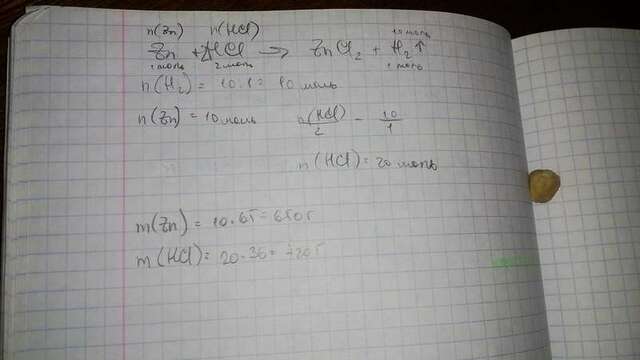 n(Zn) n(HCl) 10 моль
Zn + 2HCl → ZnCl₂ + H₂↑
1 моль 2 моль 1 моль
n(H₂) = 10·1 = 10 моль
n(Zn) = 10 моль n(HCl)/2 = 10/1
n(HCl) = 20 моль
m(Zn) = 10·65 = 650г
m(HCl) = 20·36 = 720г